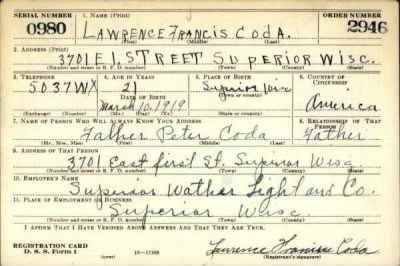 SERIAL NUMBER 1. NAME (Print) ORDER NUMBER
0980 LAWRENCE FRANCIS CODA. 2946
(First) (Middle) (Last)
2. ADDRESS (Print)
3701 E. 1 STREET SUPERIOR WISC.
(Number and street or R. F. D. number) (Town) (County) (State)
3. TELEPHONE 4. AGE IN YEARS 5. PLACE OF BIRTH 6. COUNTRY OF CITIZENSHIP
5037WX 21 Superior
DATE OF BIRTH (Town or county)
March 10. 1919 America
(Exchange) (Number) (Mo.) (Day) (Yr.) (State or country)
7. NAME OF PERSON WHO WILL ALWAYS KNOW YOUR ADDRESS 8. RELATIONSHIP OF THAT PERSON
Father Peter Coda Father
(Mr., Mrs., Miss) (First) (Middle) (Last)
9. ADDRESS OF THAT PERSON
3701 East first St. Superior Wisc.
(Number and street or R. F. D. number) (Town) (County) (State)
10. EMPLOYER'S NAME
Superior Wather Light and Co.
11. PLACE OF EMPLOYMENT OR BUSINESS
Superior Wisc.
(Number and street or R. F. D. number) (Town) (County) (State)
I AFFIRM THAT I HAVE VERIFIED ABOVE ANSWERS AND THAT THEY ARE TRUE.
REGISTRATION CARD
D. S. S. Form 1 16—17105 Lawrence Francis Coda
(Registrant's signature)